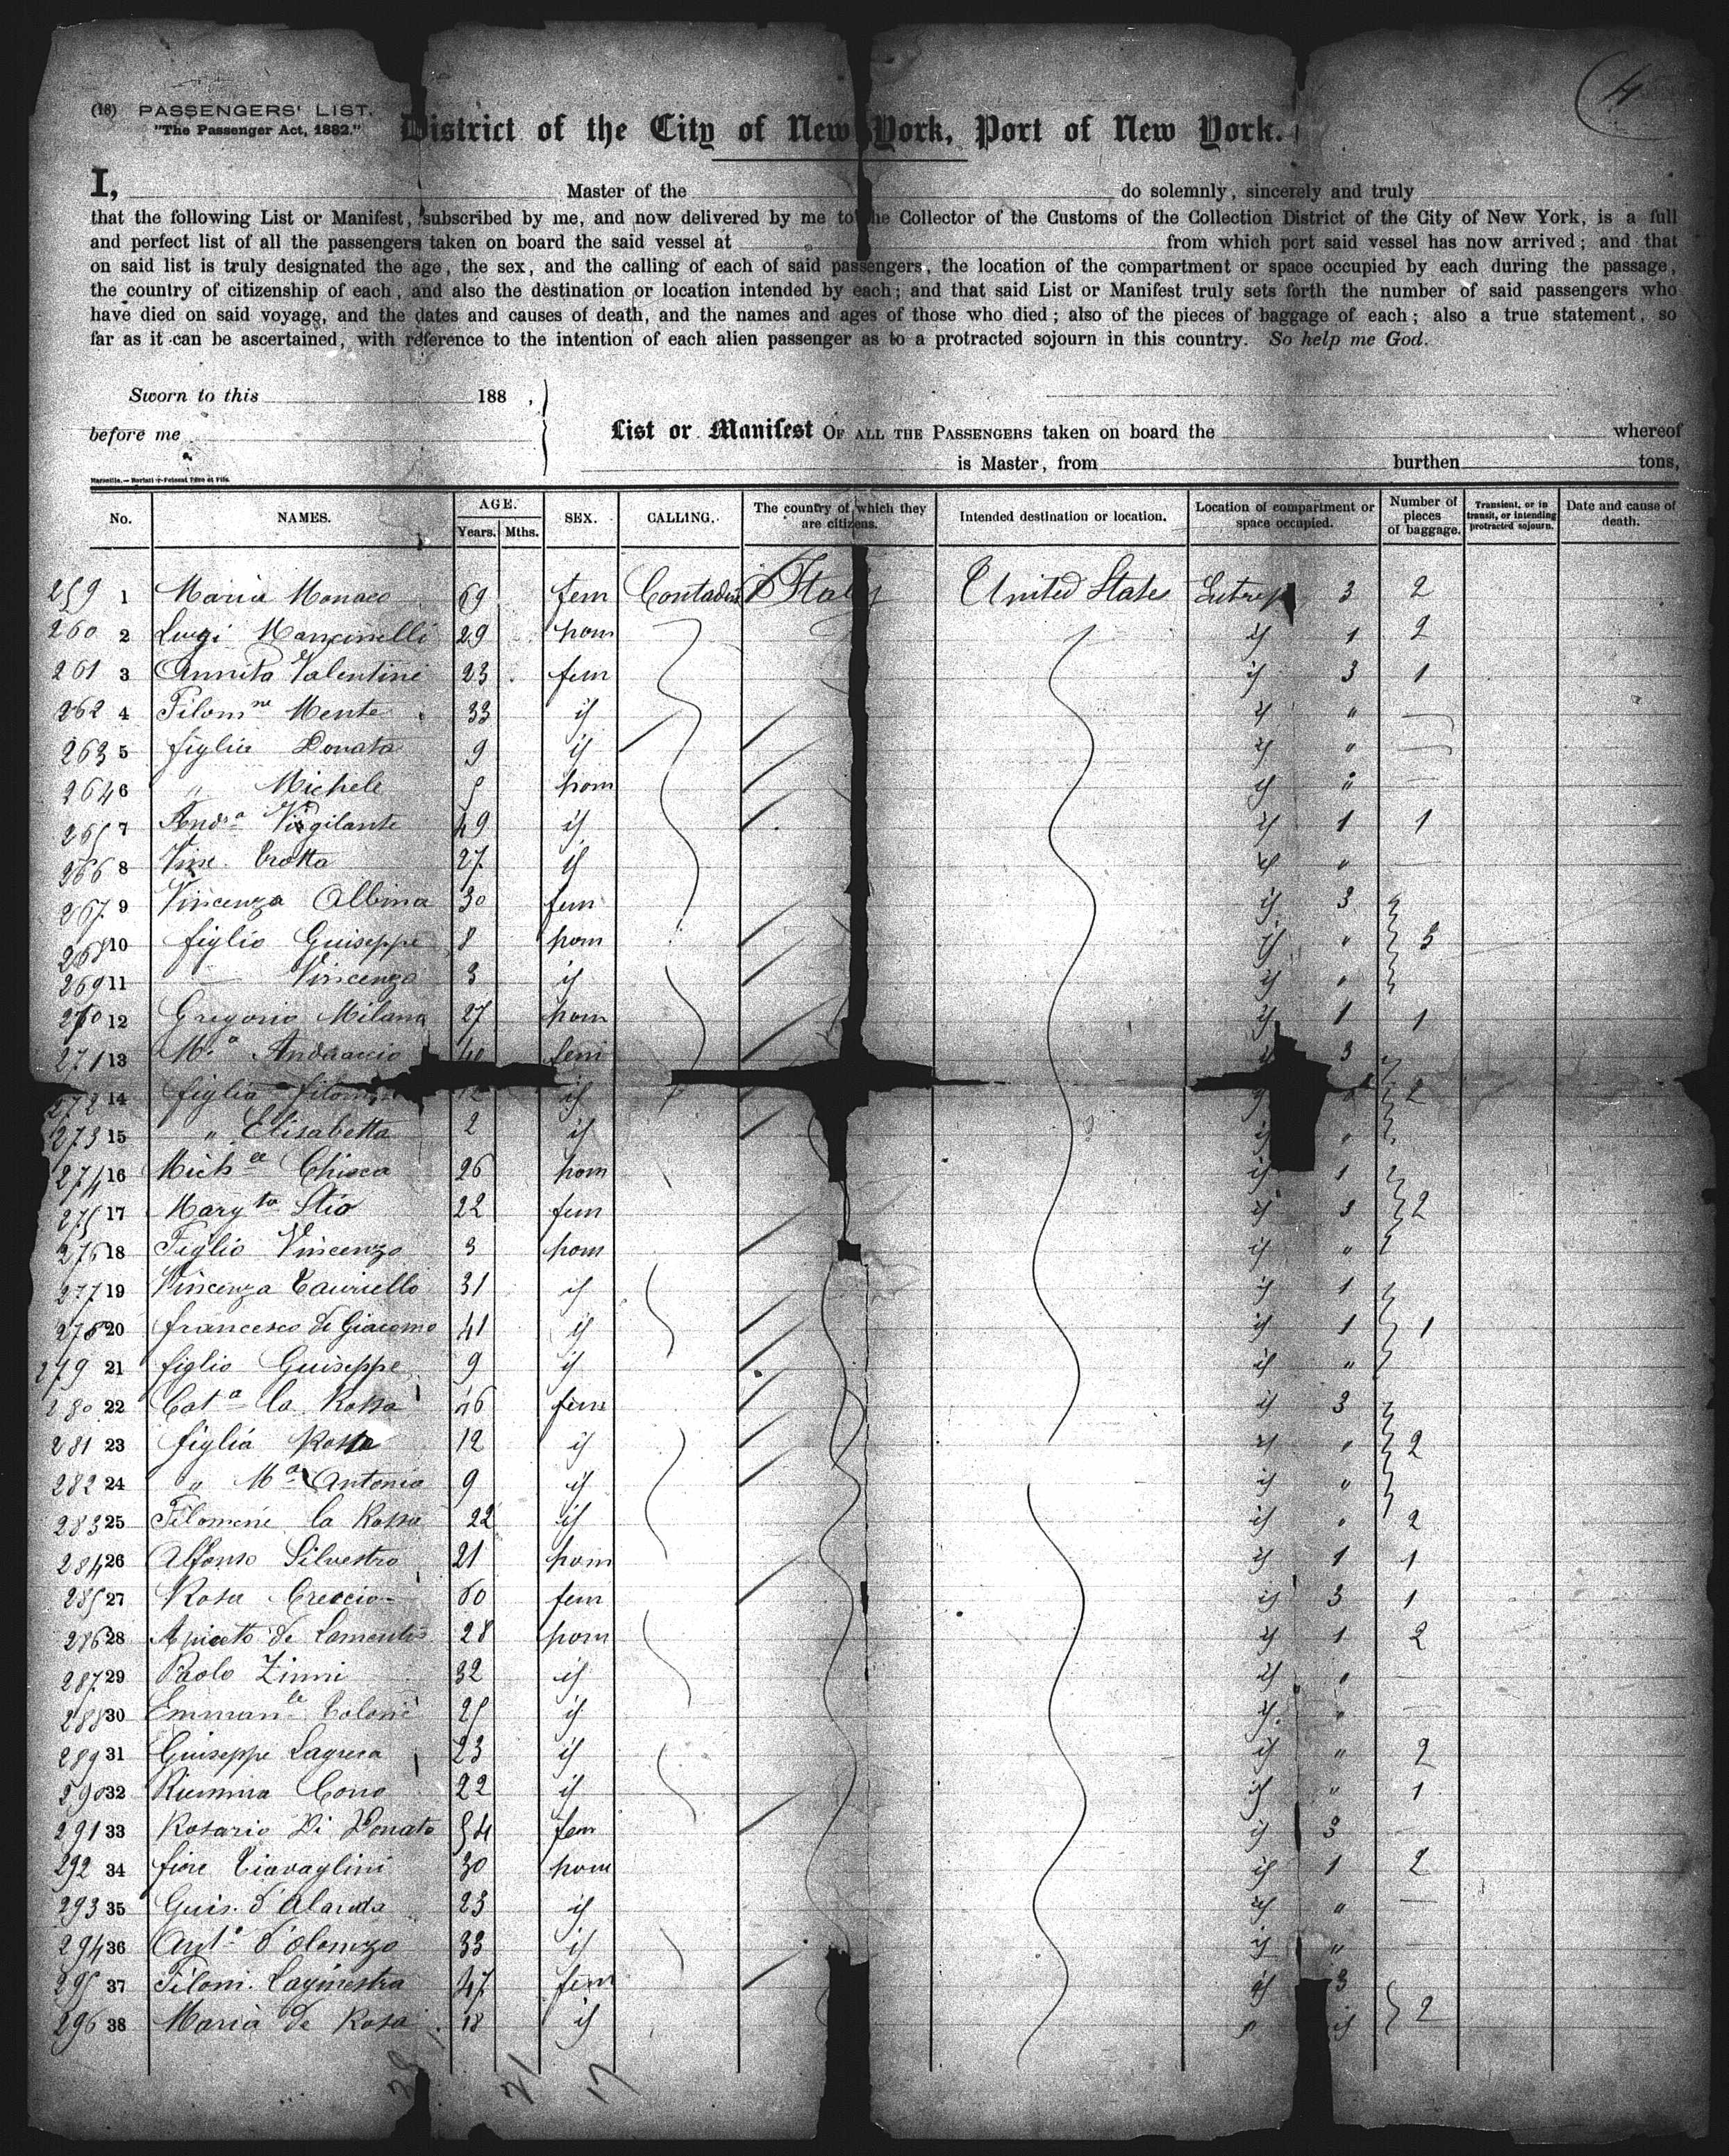 4
(18) PASSENGERS' LIST.
"The Passenger Act, 1882."
District of the City of New York, Port of New York.
I, Master of the do solemnly, sincerely and truly
that the following List or Manifest, subscribed by me, and now delivered by me to the Collector of the Customs of the Collection District of the City of New York, is a full
and perfect list of all the passengers taken on board the said vessel at from which port said vessel has now arrived; and that
on said list is truly designated the age, the sex, and the calling of each of said passengers, the location of the compartment or space occupied by each during the passage,
the country of citizenship of each, and also the destination or location intended by each; and that said List or Manifest truly sets forth the number of said passengers who
have died on said voyage, and the dates and causes of death, and the names and ages of those who died; also of the pieces of baggage of each; also a true statement, so
far as it can be ascertained, with reference to the intention of each alien passenger as to a protracted sojourn in this country. So help me God.
Sworn to this 188 ,
before me
List or Manifest OF ALL THE PASSENGERS taken on board the whereof
is Master, from burthen tons,
No. NAMES. AGE. Years. Mths. SEX. CALLING. The country of which they are citizens. Intended destination or location. Location of compartment or space occupied. Number of pieces of baggage. Transient, or in transit, or intending protracted sojourn. Date and cause of death.
259 1 Maria Monaco 69 fem Contadini Italy United States 3 2
260 2 Luigi Mancinelli 29 hom if 1 2
261 3 Annita Valentini 23 fem if 3 1
262 4 Filomne Mente 33 if if "
263 5 figlia Donata 9 if if "
264 6 " Michele 5 hom if "
265 7 Andra Virgilante 49 if if 1 1
266 8 Vinc. Crotta 27 if if "
267 9 Vincenza Albina 30 fem if 3
268 10 figlio Guiseppe 8 hom if " 3
269 11 Vincenzo 3 if if "
270 12 Gregorio Milana 27 hom if 1 1
271 13 Ma Andraccio 40 fem if 3
272 14 figlia 12 if 2
273 15 " Elisabetta 2 if if "
274 16 Michele Chieca 26 hom if 1
275 17 Margta Stio 22 fem if 3 2
276 18 Figlio Vincenzo 3 hom if "
277 19 Vincenza Tauriello 31 if if 1
278 20 francesco di Giacomo 41 if if 1 1
279 21 figlio Guiseppe 9 if if "
280 22 Cata la Rossa 46 fem if 3
281 23 figlia Rosa 12 if if " 2
282 24 " Ma Antonia 9 if if "
283 25 Filomene la Rossa 22 if if " 2
284 26 Alfonso Silvestro 21 hom if 1 1
285 27 Rosa Creccio 60 fem if 3 1
286 28 de Lamentis 28 hom if 1 2
287 29 Paolo Zinni 32 if if "
288 30 Emmanle Coloni 25 if if "
289 31 Guiseppe Lagreca 23 if if " 2
290 32 Cono 22 if if " 1
291 33 Rosario Di Donato 54 fem if 3
292 34 fiore Ciavaglini 30 hom if 1 2
293 35 Guis. d'Alanda 23 if if "
294 36 Anto d'Olonzo 33 if if "
295 37 Filom. Laginestra 47 fem if 3
296 38 Maria de Rosa 18 if if 2
21 17